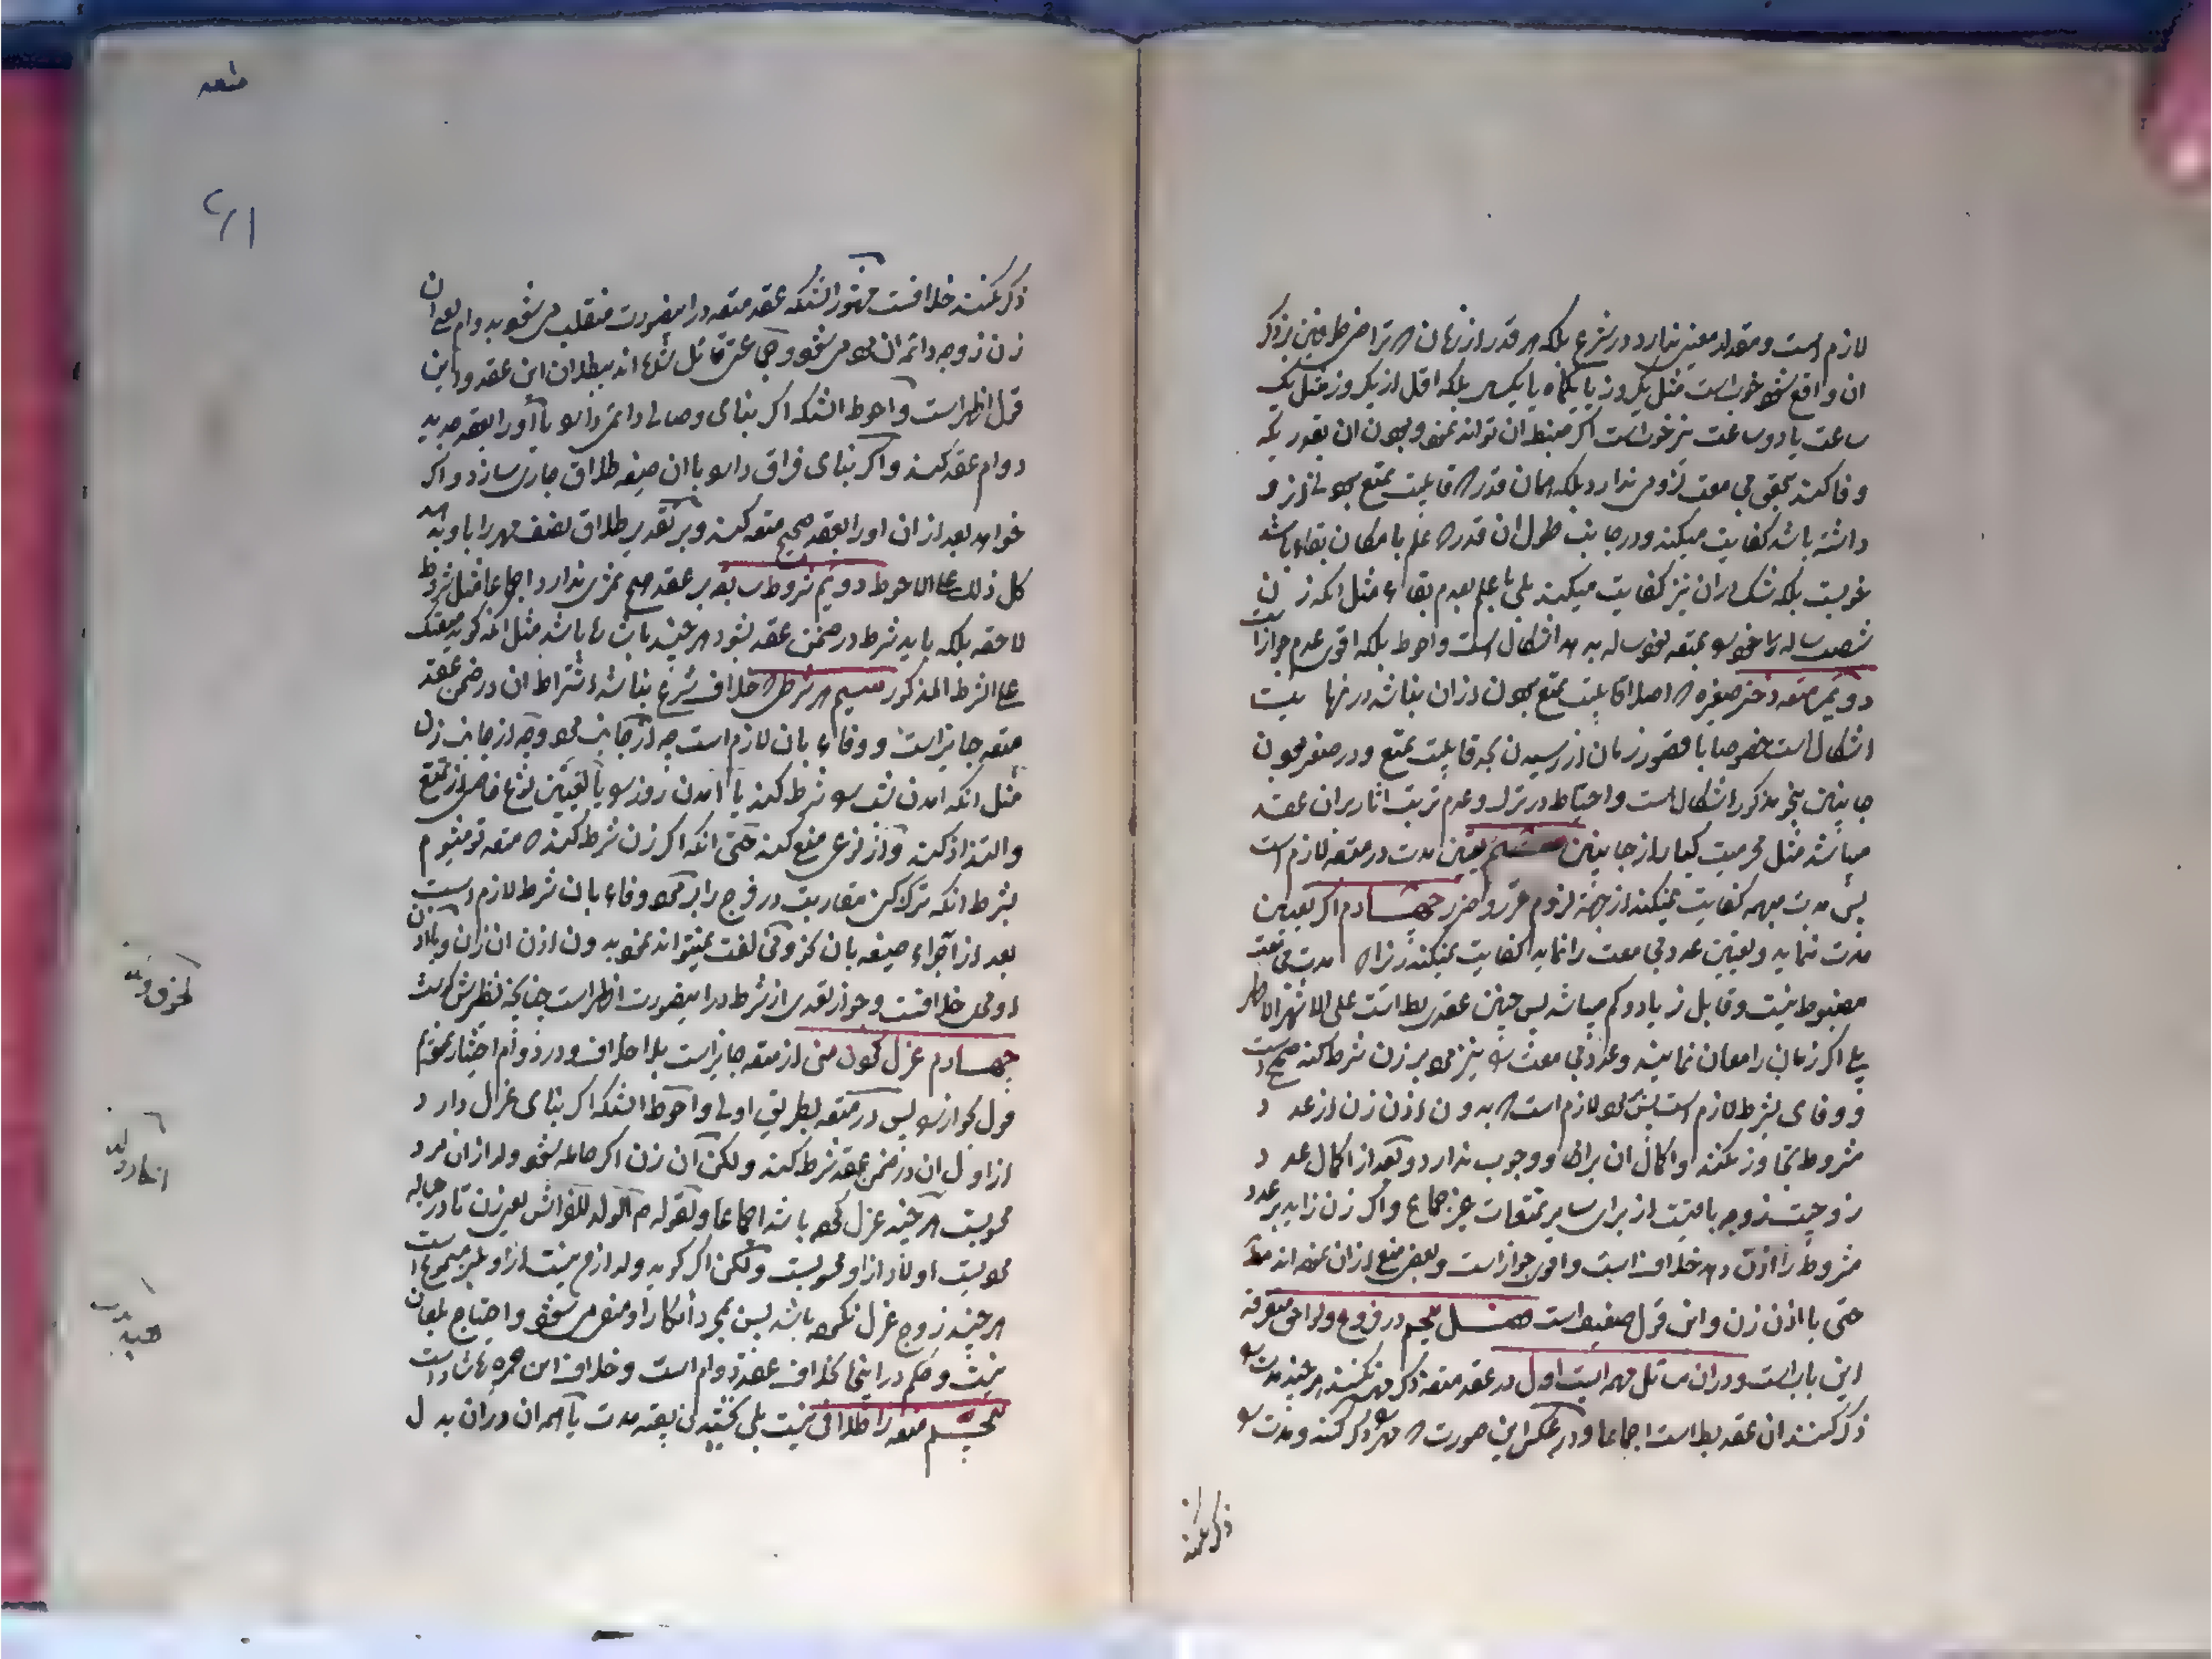 لازم است و مقدار معین ندارد در شرع بلکه هر قدر از زمان که تراضی طرفین بذکر
ان واقع شود خوبست مثل یکروز یا یکماه یا یکسال بلکه اقل از یکروز مثل یک
ساعت یا دو ساعت نیز خوبست اگر ضبط ان تواند نمود و بودن ان بقدریکه
وفا کند بتحقق مجامعت لزومی ندارد بلکه همان قدر که قابلیت تمتع بودن از او
داشته باشد کفایت میکند و در جانب طول ان قدر که علم بامکان بقاء باشد
خوبست بلکه شک دران نیز کفایت میکند بلی با علم بعدم بقاء مثل انکه زن
شصت ساله را خواسته بمتعه نود ساله بدهد اشکال است و احوط بلکه اقوی عدم جواز است
دویم متعه دختر صغیره که اصلا قابلیت تمتع بودن از ان نباشد در نهایت
اشکال است خصوصا با قصور زمان از رسیدن بحد قابلیت تمتع و در صغر بودن
جانبین بنحو مذکور اشکال است و احتیاط در ترک و عدم ترتب اثار بران عقد
میباشد مثل محرمیت کبار از جانبین سیم تعیین مدت در متعه لازم است
پس مدت مبهمه کفایت نمیکند از جهة لزوم غرر و ضرر چهارم اگر تعیین
مدت ننماید و تعیین عدد مجامعت را نماید کفایت نمیکند زیرا که مدت مجامعت
مضبوط نیست و قابل زیاد و کم میباشد پس چنین عقدی باطل است علی الاشهر الاظهر
بلی اگر زمان را معین نمایند و عدد مجامعت را نیز مرد بر زن شرط کند صحیح است
و وفای بشرط لازم است پس مرد لازم است که بدون اذن زن از عدد
مشروط تجاوز نکند و اکمال ان براو وجوب ندارد و بعد از اکمال عدد
زوجیت زوجه باقیست از برای سایر تمتعات غیر جماع و اگر زن زاید بر عدد
مشروط را اذن دهد خلاف است و اقوی جواز است و بعضی منع از ان نموده اند مطلقا
حتی با اذن زن و این قول ضعیف است فصل پنجم در فروع و لواحق متفرقه
این باب است و دران مسائل مهمه ایست اول در عقد متعه ذکر مهر نکنند هر چند مدت را
ذکر کنند ان عقد باطل است اجماعا و در عکس این صورت که مهر را ذکر کنند و مدت را
ذکر نکنند
متعه
ذکر نکنند خلافست مشهور انستکه عقد متعه در اینصورت منقلب می شود بدوام یعنی ان
زن زوجه دائمه ان مرد می شود و جماعتی قائل شده اند ببطلان این عقد و این
قول اظهر است و احوط انستکه اگر بنای وصال دائمی دارد با او را بعقد جدید
دوام عقد کند و اگر بنای فراق دارد با ان صیغه طلاق جاری سازد و اگر
خواهد بعد از ان او را بعقد صحیح متعه کند و بر تقدیر طلاق نصف مهر را باو بدهد
کل ذلک علی الاحوط دویم شروط سابقه بر عقد صحیح ثمری ندارد اجماعا مثل شروط
لاحقه بلکه باید شرط در ضمن عقد بشود هر چند باشاره باشد مثل انکه گوید متعتک
علی الشرط المذکور سیم هر شرطی که خلاف شرع نباشد اشتراط ان در ضمن عقد
متعه جایز است و وفاء بان لازم است چه از جانب مرد و چه از جانب زن
مثل انکه امدن شب را شرط کند یا امدن روز را یا تعیین نوع خاصی از تمتع
و التذاذ کند و از نوعی منع کند حتی انکه اگر زن شرط کند که متعه تو میشوم
بشرط انکه ترک کنی مقاربت در فرج را بر مرد وفاء بان شرط لازم است
بعد از اجراء صیغه بان نحو و مخالفت نمیتواند نمود بدون اذن ان زن و با اذن
او محل خلافست و جواز تعدی از شرط در اینصورت اظهر است چنانچه نظیرش گذشت
چهارم عزل نمودن منی از متعه جایز است بلا خلاف و در دوام اختیار نمودیم
قول بجواز را پس در متعه بطریق اولی و احوط انستکه اگر بنای عزل دارد
از اول ان در ضمن عقد شرط کند ولکن آن زن اگر حامله شود ولد از ان مرد
محسوبست هر چند عزل کرده باشد اجماعا و لقوله ص الولد للفراش یعنی زن تا در حباله
مردیست اولاد از او محسوبست ولکن اگر گوید ولد از من نیست از او بلعن مسموع است
هر چند زوج عزل نکرده باشد پس بمجرد انکار او منفی می شود و احتیاج بلعان
نیست و حکم در اینجا بخلاف عقد دوام است و خلاف این حمزه شاذ است
پنجم متعه را طلاقی نیست بلی بخشیدن بقیه مدت یا تمام ان دران بدل